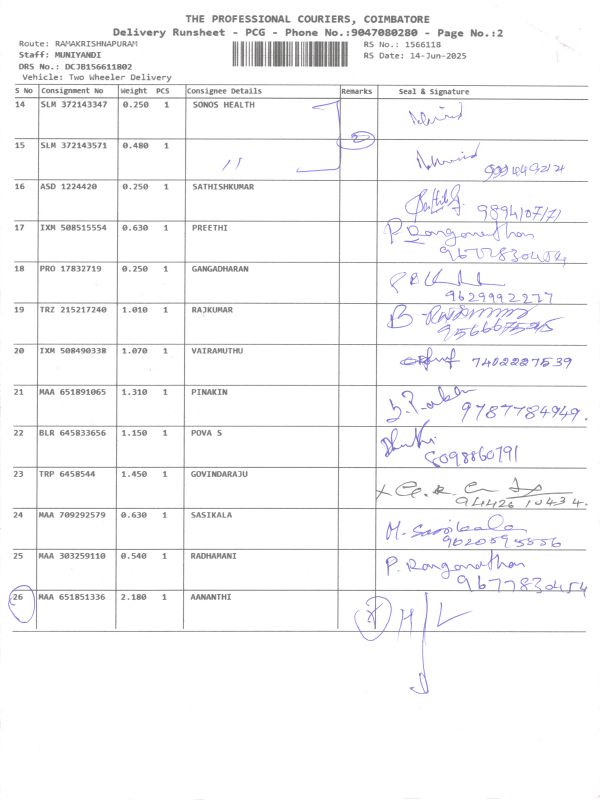 THE PROFESSIONAL COURIERS, COIMBATORE
Delivery Runsheet - PCG - Phone No.:9047080280 - Page No.:2
Route: RAMAKRISHNAPURAM RS No.: 1566118
Staff: MUNIYANDI RS Date: 14-Jun-2025
DRS No.: DCJB156611802
Vehicle: Two Wheeler Delivery
S No Consignment No Weight PCS Consignee Details Remarks Seal & Signature
14 SLM 372143347 0.250 1 SONOS HEALTH
2
15 SLM 372143571 0.480 1 "
16 ASD 1224420 0.250 1 SATHISHKUMAR
9894107171
17 IXM 508515554 0.630 1 PREETHI P. Ranganathan
9677830454
18 PRO 17832719 0.250 1 GANGADHARAN
9629992277
19 TRZ 215217240 1.010 1 RAJKUMAR B
20 IXM 508490338 1.070 1 VAIRAMUTHU 7402227539
21 MAA 651891065 1.310 1 PINAKIN
9787784949.
22 BLR 645833656 1.150 1 POVA S
8098860791
23 TRP 6458544 1.450 1 GOVINDARAJU
9442610434.
24 MAA 709292579 0.630 1 SASIKALA M. Sasikala
9620595556
25 MAA 303259110 0.540 1 RADHAMANI P. Ranganathan
9677830454
26 MAA 651851336 2.180 1 AANANTHI